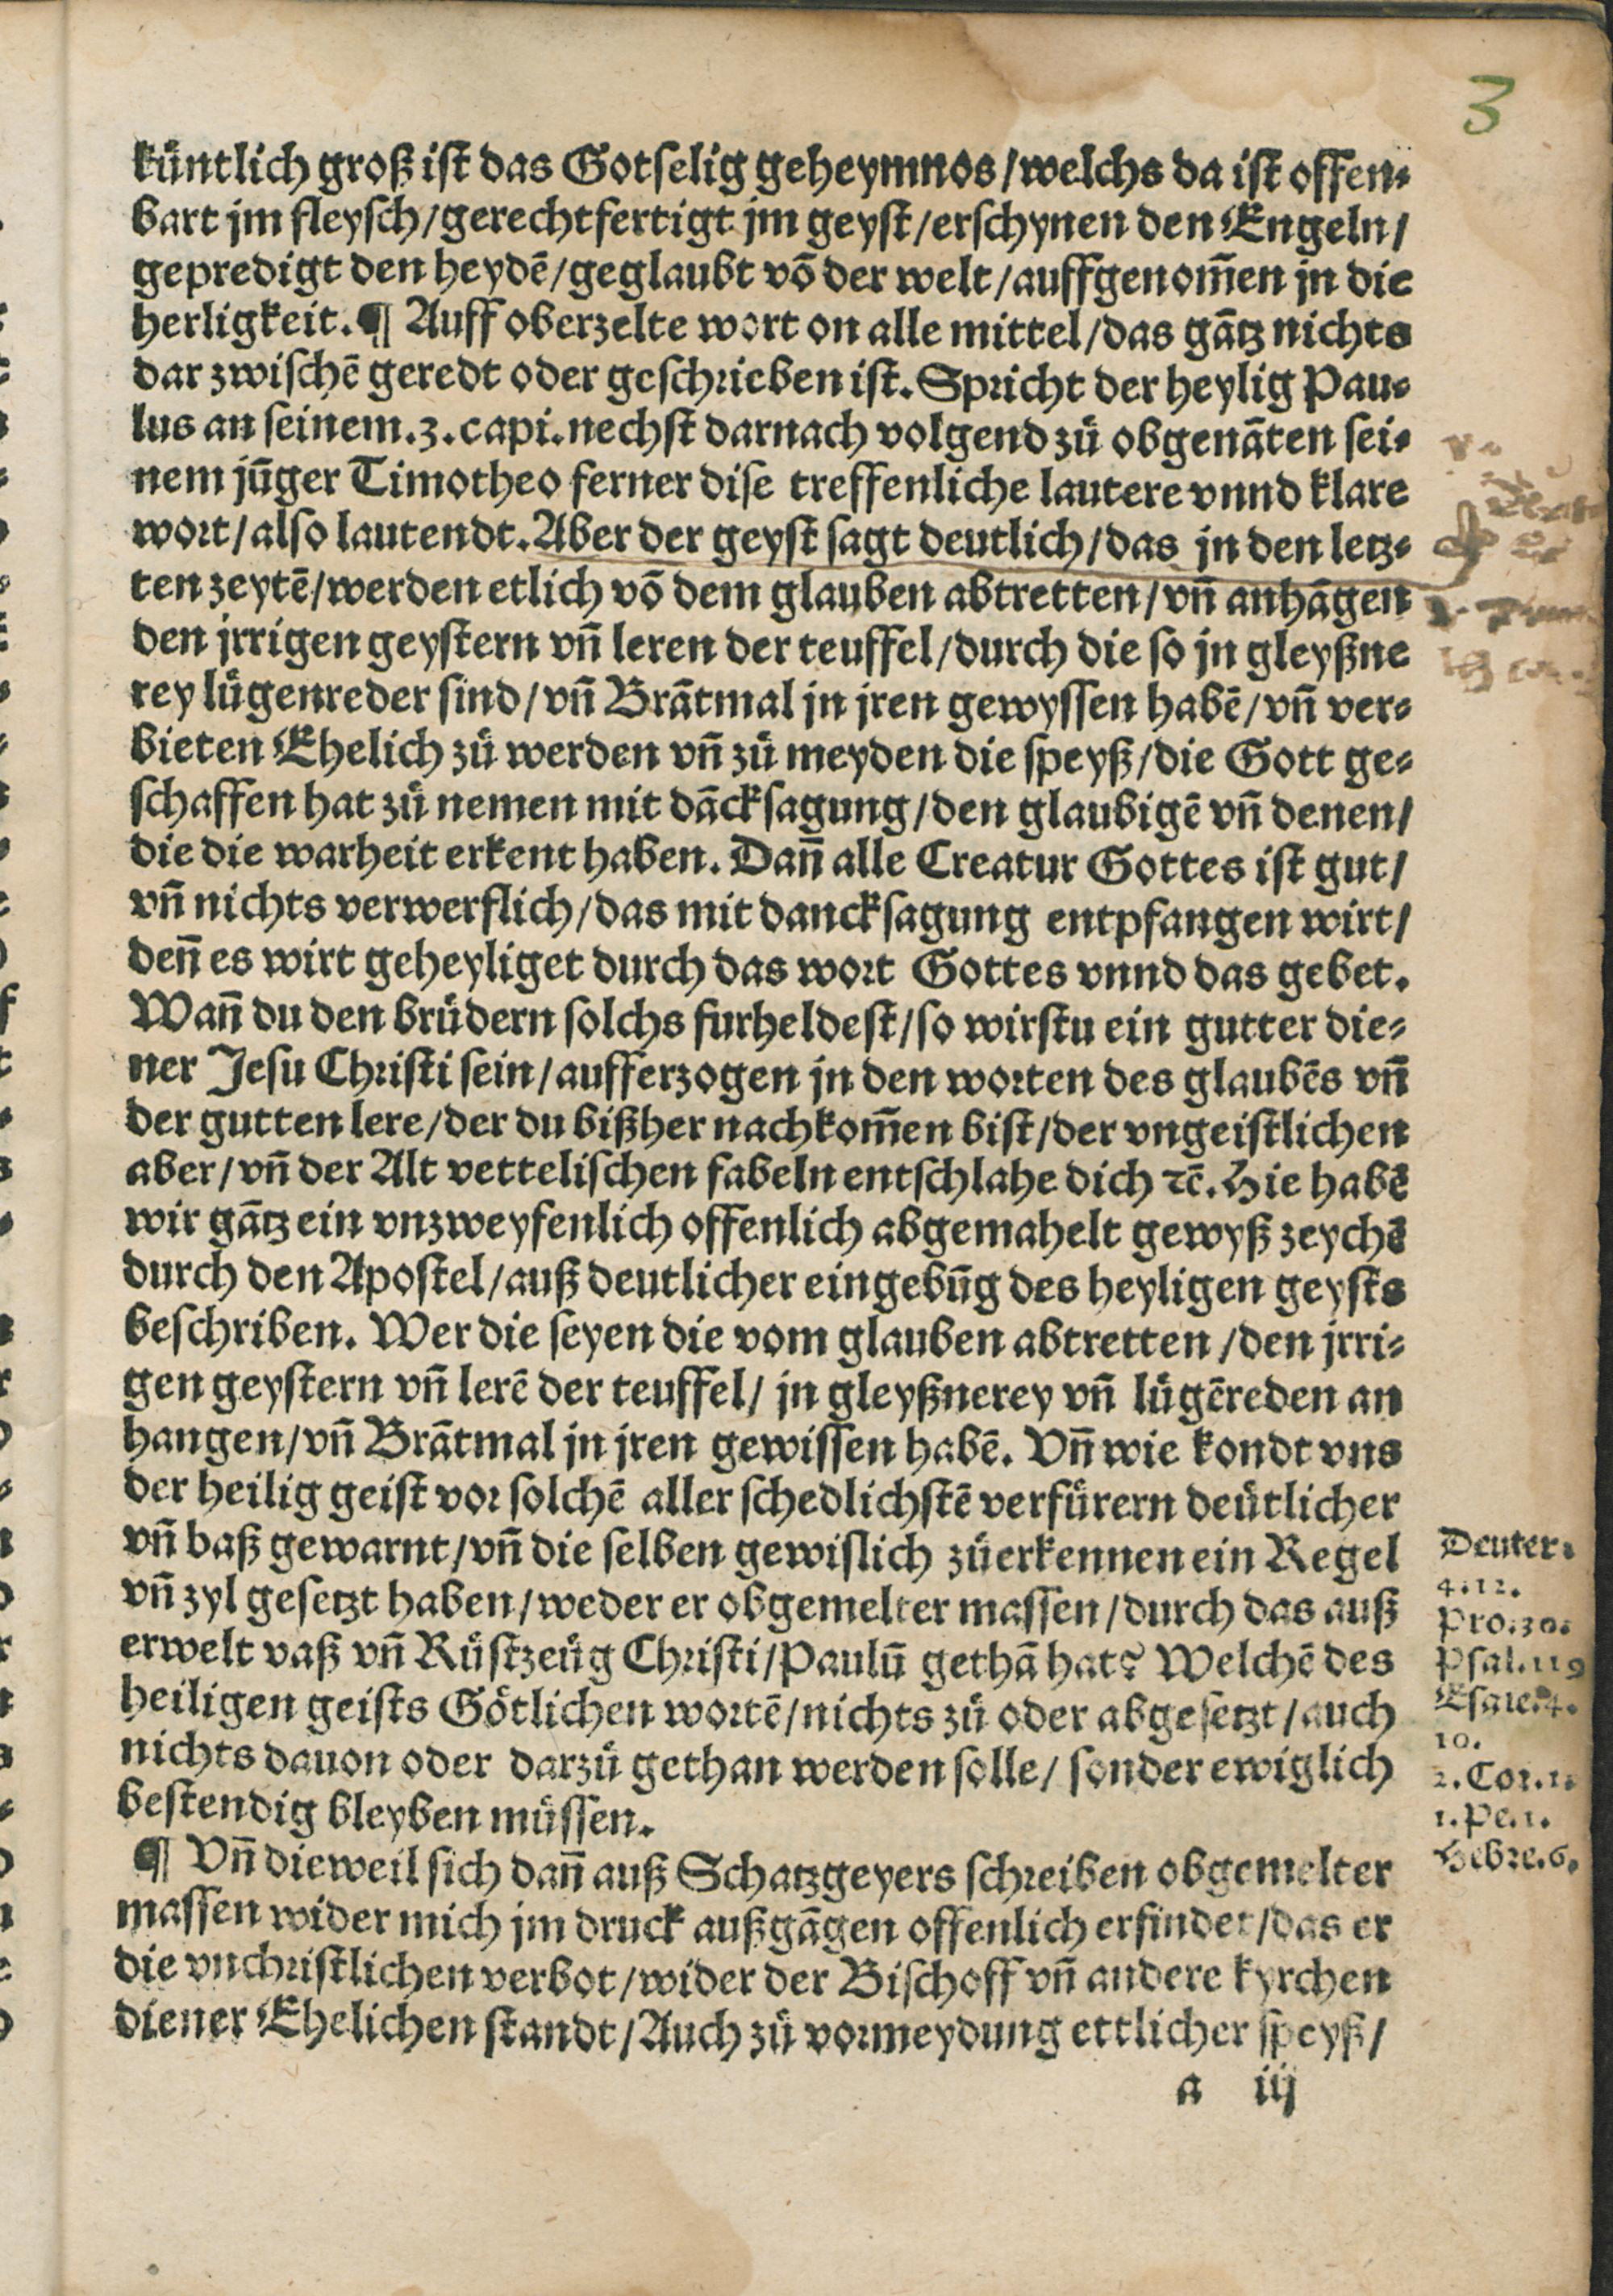 3
küntlich groß ist das Gotselig geheymnos/welchs da ist offen⸗
bart jm fleysch/gerechtfertigt jm geyst/erschynen den Engeln/
gepredigt den heydē/geglaubt vō der welt/auffgenom̄en jn die
herligkeit. ¶ Auff oberzelte wort on alle mittel/das gātz nichts
dar zwischē geredt oder geschrieben ist. Spricht der heylig Pau⸗
lus an seinem.3.capi.nechst darnach volgend zů obgenāten sei⸗
nem jūger Timotheo ferner dise treffenliche lautere vnnd klare
wort/also lautendt. Aber der geyst sagt deutlich/das jn den letz⸗
ten zeytē/werden etlich vō dem glauben abtretten/vn̄ anhāgen
den jrrigen geystern vn̄ leren der teuffel/durch die so jn gleyßne
rey lügenreder sind/vn̄ Brātmal jn jren gewyssen habē/vn̄ ver⸗
bieten Ehelich zů werden vn̄ zů meyden die speyß/die Gott ge⸗
schaffen hat zů nemen mit dācksagung/den glaubigē vn̄ denen/
die die warheit erkent haben. Dan̄ alle Creatur Gottes ist gut/
vn̄ nichts verwerflich/das mit dancksagung entpfangen wirt/
den̄ es wirt geheyliget durch das wort Gottes vnnd das gebet.
Wan̄ du den brüdern solchs furheldest/so wirstu ein gutter die⸗
ner Jesu Christi sein/aufferzogen jn den worten des glaubēs vn̄
der gutten lere/der du bißher nachkom̄en bist/der vngeistlichen
aber/vn̄ der Alt vettelischen fabeln entschlahe dich ꝛc̄. Hie habē
wir gātz ein vnzweyfenlich offenlich abgemahelt gewyß zeychē
durch den Apostel/auß deutlicher eingebūg des heyligen geysts
beschriben. Wer die seyen die vom glauben abtretten/den jrri⸗
gen geystern vn̄ lerē der teuffel/ jn gleyßnerey vn̄ lügēreden an
hangen/vn̄ Brātmal jn jren gewissen habē. Vn̄ wie kondt vns
der heilig geist vor solchē aller schedlichstē verfürern deütlicher
vn̄ baß gewarnt/vn̄ die selben gewislich zůerkennen ein Regel
vn̄ zyl gesetzt haben/weder er obgemelter massen/durch das auß
erwelt vaß vn̄ Rüstzeüg Christi/Paulū gethā hat? Welchē des
heiligen geists Götlichen wortē/nichts zů oder abgesetzt/auch
nichts dauon oder darzů gethan werden solle/ sonder ewiglich
bestendig bleyben müssen.
Deuter.
4.12.
Pro.30.
Psal.119
Esaie.4.
10.
2.Cor.1.
1.Pe.1.
Hebre.6.
¶ Vn̄ dieweil sich dan̄ auß Schatzgeyers schreiben obgemelter
massen wider mich jm druck außgāgen offenlich erfindet/das er
die vnchristlichen verbot/wider der Bischoff vn̄ andere kyrchen
diener Ehelichen standt/Auch zů vormeydung ettlicher speyß/
a iij